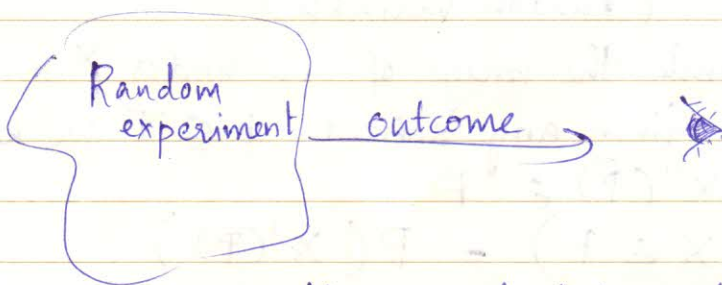 Random
experiment outcome